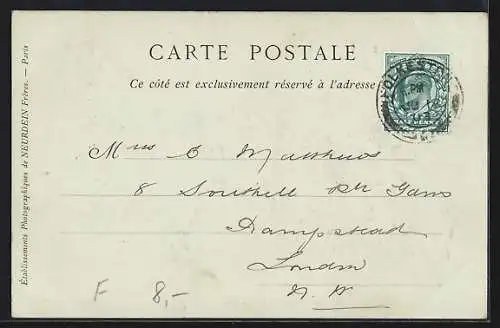 CARTE POSTALE
Ce côté est exclusivement réservé à l'adresse
Établissements Photographiques de NEURDEIN Frères. — Paris
FOLKESTONE
PM
Mrs C Matthews
8 Southill Pk Gdns
Hampstead
London
N. W
F 8,-